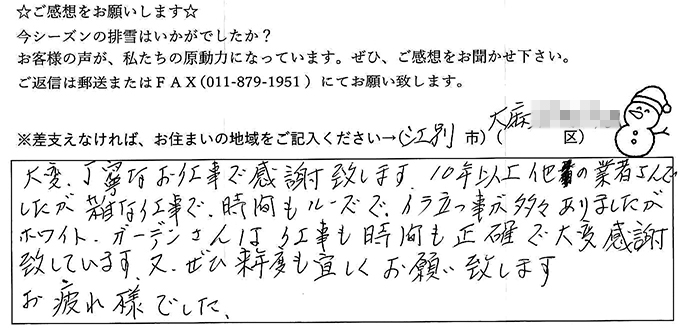 ☆ご感想をお願いします☆
今シーズンの排雪はいかがでしたか？
お客様の声が、私たちの原動力になっています。ぜひ、ご感想をお聞かせ下さい。
ご返信は郵送またはＦＡＸ(011-879-1951）にてお願い致します。
※差支えなければ、お住まいの地域をご記入ください→(江別 市)(大麻 区)
大変、丁寧なお仕事で感謝致します。10年以上他の業者さんで
したが雑な仕事で、時間もルーズで、イラ立つ事が多々ありましたが
ホワイト.ガーデンさんは仕事も時間も正確で大変感謝
致しています。又、ぜひ来年度も宜しくお願い致します
お疲れ様でした。